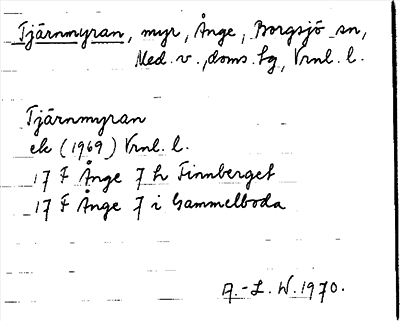 Tjärnmyran, myr, Ånge, Borgsjö sn,
Med. v., doms. tg, Vrnl. l.
Tjärnmyran
ek (1969) Vrnl. l.
17 F Ånge 7 h Finnberget
17 F Ånge 7 i Gammelboda
A.-L. W. 1970.